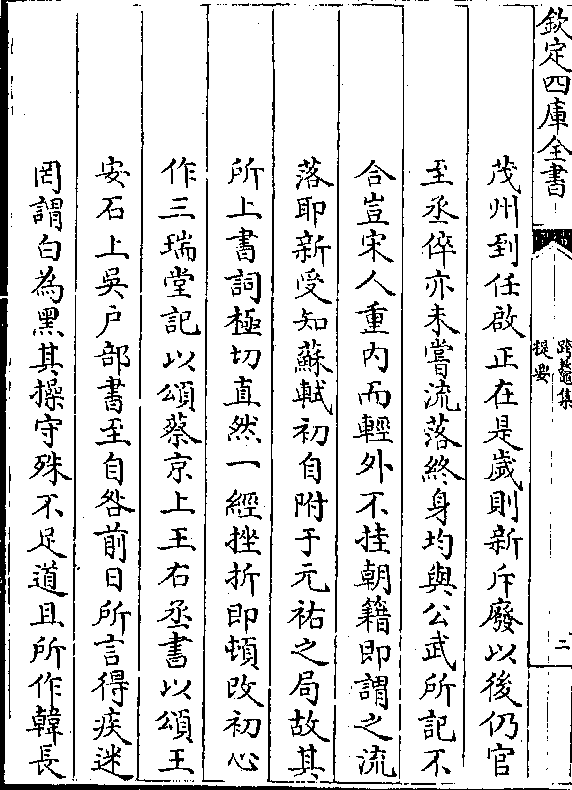 欽定四庫全書
跨鼇集
提要
二
茂州到任啟正在是歲則新斥廢以後仍官
至丞倅亦未嘗流落終身均與公武所記不
合豈宋人重内而輕外不挂朝籍即謂之流
落耶新受知蘇軾初自附于元祐之局故其
所上書詞極切直然一經挫折即頓改初心
作三瑞堂記以頌蔡京上王右丞書以頌王
安石上吳户部書至自咎前日所言得疾迷
罔謂白為黑其操守殊不足道且所作韓長